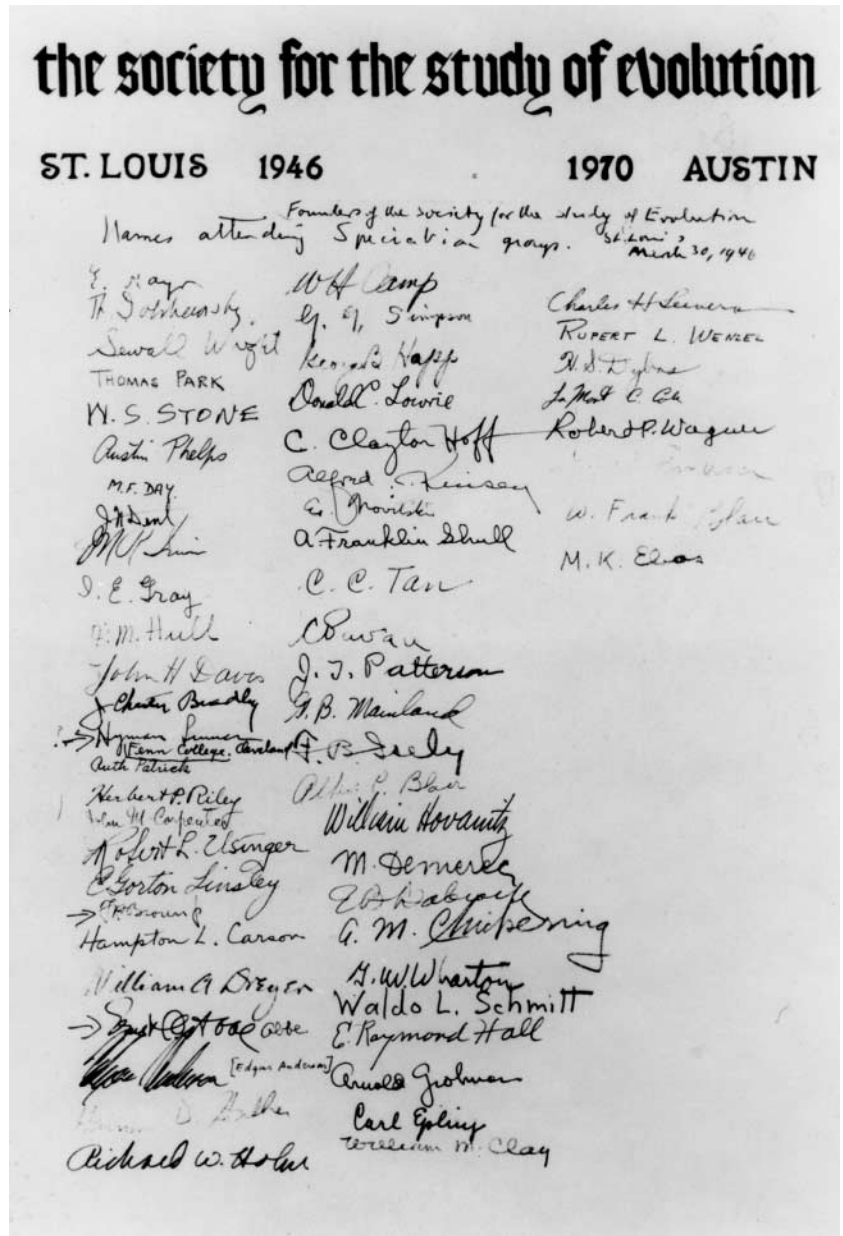 the society for the study of evolution
ST. LOUIS 1946 1970 AUSTIN
Founders of the Society for the study of Evolution
Names attending Speciation groups. St. Louis
March 30, 1946
E. Mayr
Th Dobzhansky
Sewall Wright
THOMAS PARK
W. S. STONE
Austin Phelps
M.F. DAY
J N Dent
I. E. Gray
F. M. Hull
John H Davis
J Chester Bradley
? → Hyman
Fenn College, Cleveland
Ruth Patrick
Herbert P. Riley
John M Carpenter
Robert L. Usinger
E Gorton Linsley
→ Brown
Hampton L. Carson
William A Dreyer
→ Abbe
[Edgar Anderson]
D.
Richard W. Holm
WH Camp
G. G. Simpson
George B Happ
Donald C. Lowrie
C. Clayton Hoff
Alfred C. Kinsey
A. Franklin Shull
C. C. Tan
J. T. Patterson
G. B. Mainland
F. B. Isely
Albert P. Blair
William Hovanitz
M. Demerec
A. M. Chickering
G. W. Wharton
Waldo L. Schmitt
E. Raymond Hall
Arnold Grobman
Carl Epling
William M. Clay
Charles H Seevers
RUPERT L. WENZEL
H. S. Dybas
La Mont C. Cole
Robert P. Wagner
W. Frank Blair
M. K. Elias